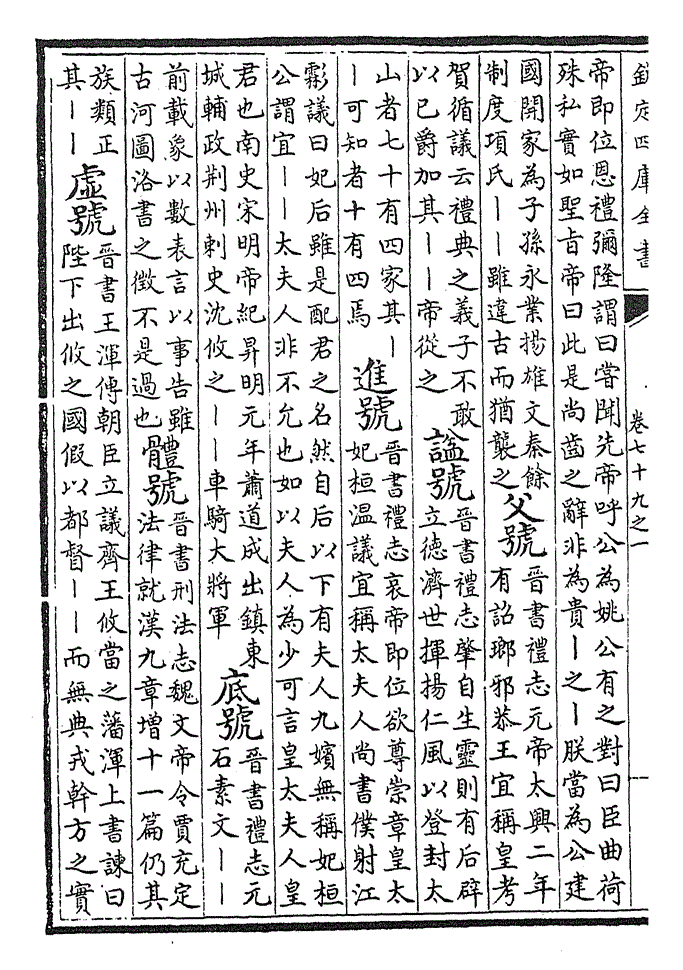 欽定四庫全書　卷七十九之一
帝即位恩禮彌隆謂曰嘗聞先帝呼公為姚公有之對曰臣曲荷
殊私實如聖旨帝曰此是尚齒之辭非為貴丨之丨朕當為公建
國開家為子孫永業揚雄文秦餘
制度項氏丨丨雖違古而猶襲之
父號
晉書禮志元帝太興二年
有詔瑯邪恭王宜稱皇考
賀循議云禮典之義子不敢
以已爵加其丨丨帝從之
諡號
晉書禮志肇自生靈則有后辟
立德濟世揮揚仁風以登封太
山者七十有四家其丨
丨可知者十有四焉
進號
晉書禮志哀帝即位欲尊崇章皇太
妃桓温議宜稱太夫人尚書僕射江
霦議曰妃后雖是配君之名然自后以下有夫人九嬪無稱妃桓
公謂宜丨丨太夫人非不允也如以夫人為少可言皇太夫人皇
君也南史宋明帝紀昇明元年蕭道成出鎮東
城輔政荆州刺史沈攸之丨丨車騎大將軍
底號
晉書禮志元
石素文丨丨
前載象以數表言以事告雖
古河圖洛書之徵不是過也
體號
晉書刑法志魏文帝令賈充定
法律就漢九章增十一篇仍其
族類正
其丨丨
虛號
晉書王渾傳朝臣立議齊王攸當之藩渾上書諫曰
陛下出攸之國假以都督丨丨而無典戎幹方之實